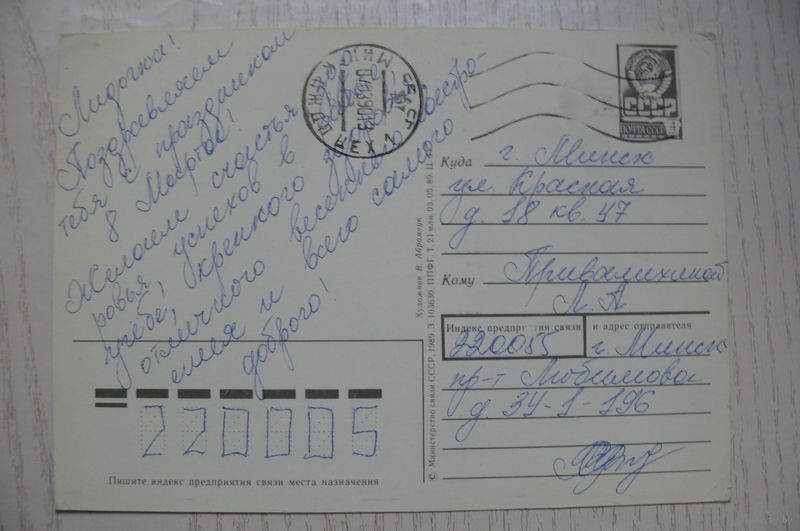 Лидочка!
Поздравляем
тебя с праздником
8 Марта!
Желаем счастья
ровья, успехов в
учебе, крепкого здо-
отличного весеннего настро-
ения и всего самого
доброго!
МИНСК
СССР
ПОЧТА СССР
Куда г. Минск
ул. Красная
д. 18 кв. 47
Кому
Л. А
Индекс предприятия связи и адрес отправителя
220055 г. Минск
пр-т Любимова
д. 34-1-196
220005
Пишите индекс предприятия связи места назначения
Художник В. Абрамчук
© Министерство связи СССР, 1989. З. 103630. ППФГ. Т. 21 млн. 03. 05. 89